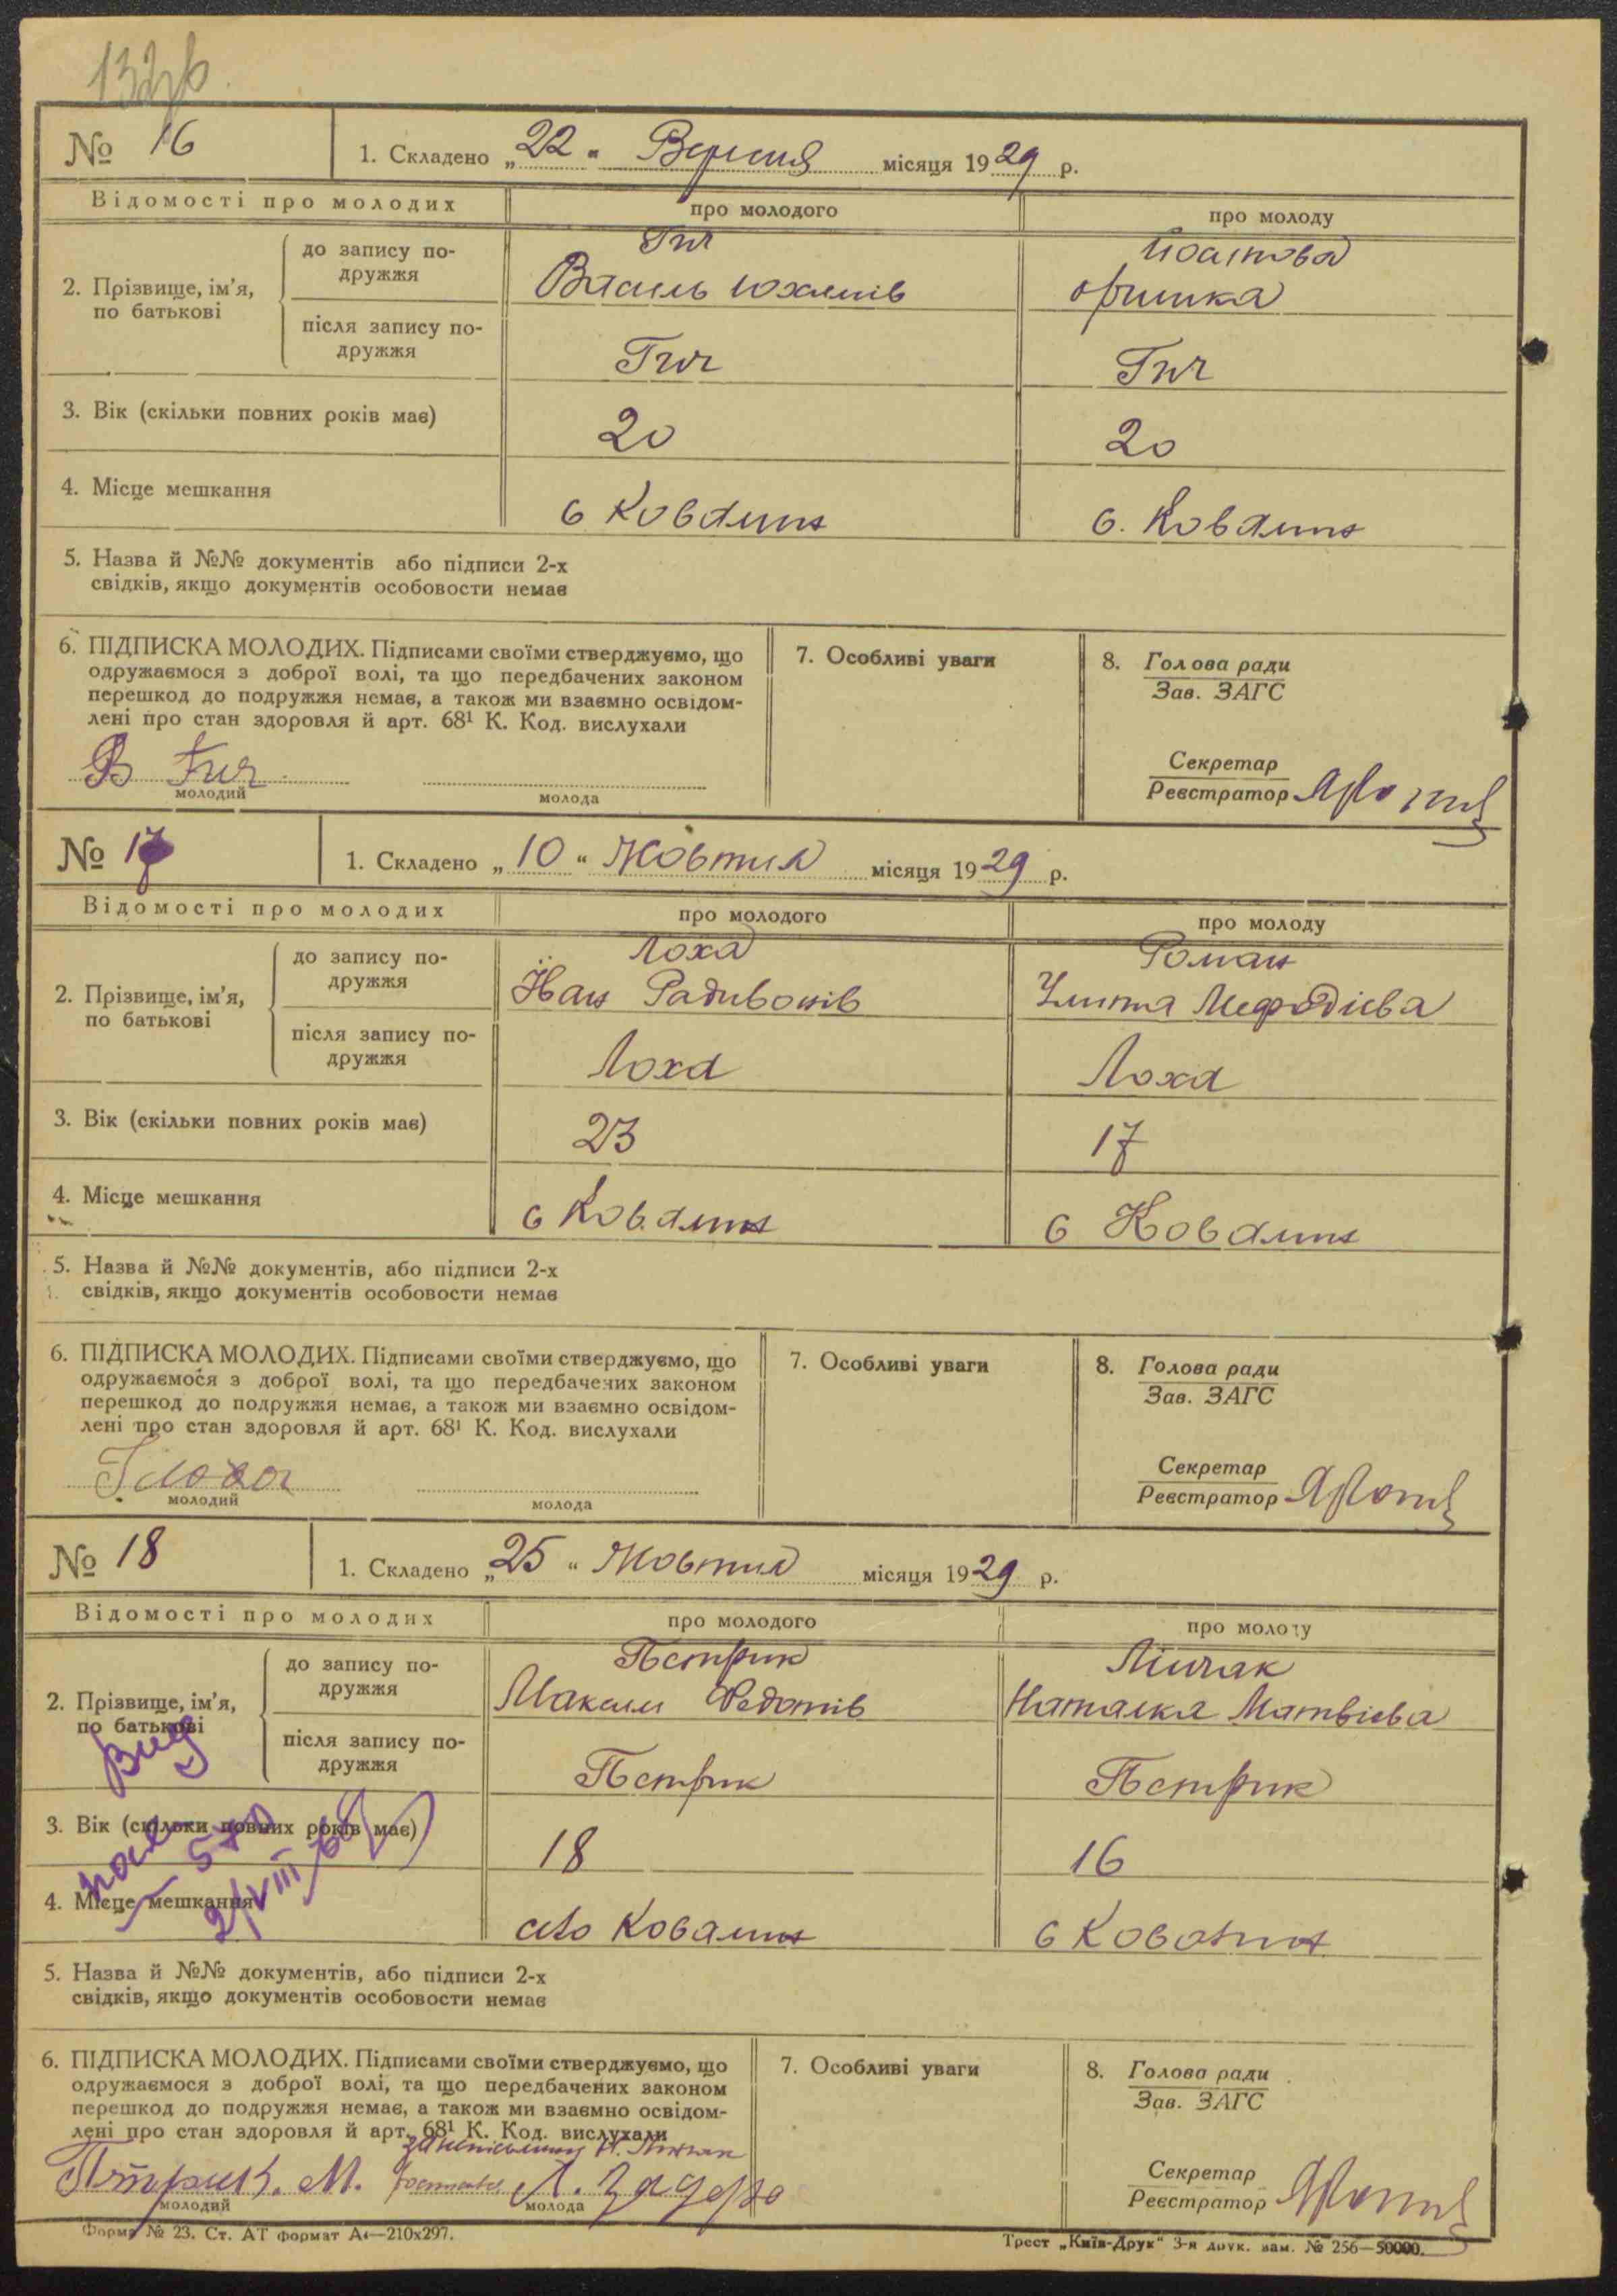 № 16
1. Складено „22“ Вересня місяця 1929 р.
Відомості про молодих
про молодого
про молоду
2. Прізвище, ім'я, по батькові
до запису по-
дружжя
Гич
Василь Юхимів
Оришка
після запису по-
дружжя
Гич
Гич
3. Вік (скільки повних років має)
20
20
4. Місце мешкання
с Ковалин
с. Ковалин
5. Назва й №№ документів або підписи 2-х
свідків, якщо документів особовости немає
6. ПІДПИСКА МОЛОДИХ. Підписами своїми стверджуємо, що
одружаємося з доброї волі, та що передбачених законом
перешкод до подружжя немає, а також ми взаємно освідом-
лені про стан здоровля й арт. 68¹ К. Код. вислухали
В Гич
молодий
молода
7. Особливі уваги
8. Голова ради
Зав. ЗАГС
Секретар
Реєстратор
№ 17
1. Складено „10“ Жовтня місяця 1929 р.
Відомості про молодих
про молодого
про молоду
2. Прізвище, ім'я, по батькові
до запису по-
дружжя
Лоха
Роман
Іван Радивонів
Улита Мефодієва
після запису по-
дружжя
Лоха
Лоха
3. Вік (скільки повних років має)
23
17
4. Місце мешкання
с Ковалин
с Ковалин
5. Назва й №№ документів, або підписи 2-х
свідків, якщо документів особовости немає
6. ПІДПИСКА МОЛОДИХ. Підписами своїми стверджуємо, що
одружаємося з доброї волі, та що передбачених законом
перешкод до подружжя немає, а також ми взаємно освідом-
лені про стан здоровля й арт. 68¹ К. Код. вислухали
І Лоха
молодий
молода
7. Особливі уваги
8. Голова ради
Зав. ЗАГС
Секретар
Реєстратор
№ 18
1. Складено „25“ Жовтня місяця 1929 р.
Відомості про молодих
про молодого
про молоду
2. Прізвище, ім'я,
по батькові
до запису по-
дружжя
Пстрик
Максим Федотів
Наталка Матвієва
після запису по-
дружжя
Пстрик
Пстрик
3. Вік (скільки повних років має)
18
16
4. Місце мешкання
село Ковалин
с Ковалин
5. Назва й №№ документів, або підписи 2-х
свідків, якщо документів особовости немає
6. ПІДПИСКА МОЛОДИХ. Підписами своїми стверджуємо, що
одружаємося з доброї волі, та що передбачених законом
перешкод до подружжя немає, а також ми взаємно освідом-
лені про стан здоровля й арт. 68¹ К. Код. вислухали
М.
молодий
молода
7. Особливі уваги
8. Голова ради
Зав. ЗАГС
Секретар
Реєстратор
Форма № 23. Ст. АТ формат А4—210х297.
Трест „Київ-Друк“ 3-я друк. зам. № 256—50000.